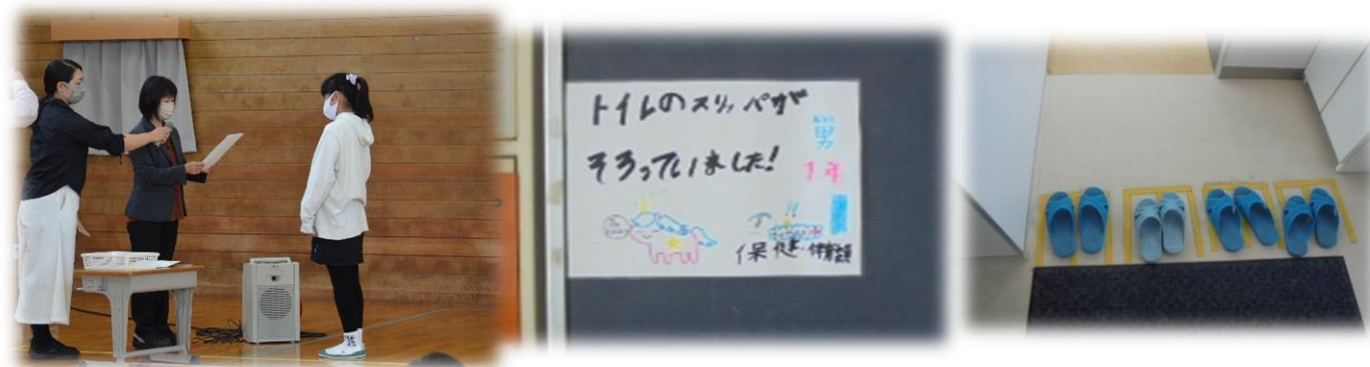 トイレのスリッパが
そろっていました!
男
1年
保健・体育部